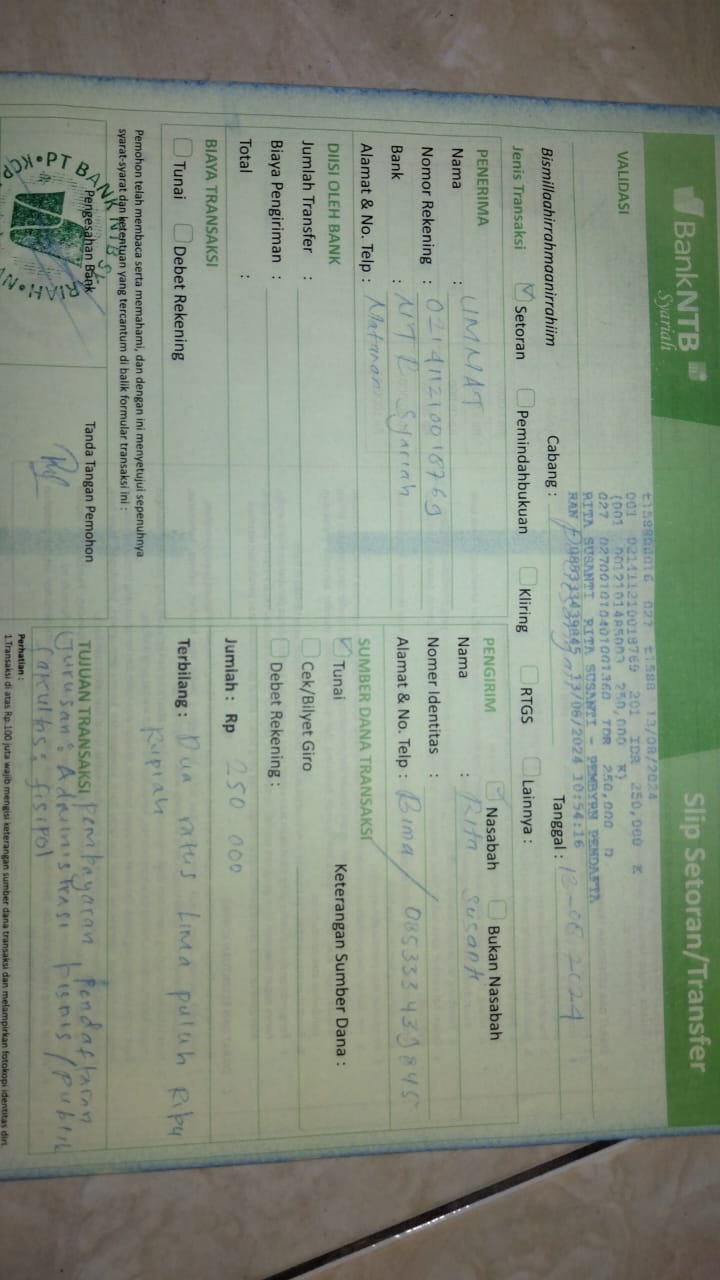 BankNTB
Syariah
Slip Setoran/Transfer
VALIDASI
t1588 13/08/2024
001 021411210018769 201 IDR 250,000 K
250,000 K)
027 0270010104001001360 IDR 250,000 D
RITA SUSANTI RITA SUSANTI - PEMBYRN PENDAFTA
RAN 085333439845 13/06/2024 10:54:16
Bismillaahirrahmaanirrahiim
Cabang :
Tanggal : 13-06-2024
Jenis Transaksi Setoran Pemindahbukuan Kliring RTGS Lainnya :
PENERIMA
Nama : UMMAT
Nomor Rekening : 021411210018769
Bank : NTB Syariah
Alamat & No. Telp : Mataram
PENGIRIM Nasabah Bukan Nasabah
Nama : Rita Susanti
Nomer Identitas :
Alamat & No. Telp : Bima / 085333439845
DIISI OLEH BANK
Jumlah Transfer :
Biaya Pengiriman :
Total :
SUMBER DANA TRANSAKSI
Tunai Keterangan Sumber Dana :
Cek/Bilyet Giro
Debet Rekening :
BIAYA TRANSAKSI
Tunai Debet Rekening
Jumlah : Rp 250 000
Terbilang : Dua ratus Lima puluh Ribu
Rupiah
Pemohon telah membaca serta memahami, dan dengan ini menyetujui sepenuhnya
syarat-syarat dan ketentuan yang tercantum di balik formular transaksi ini :
Pengesahan Bank
PT BANK NTB SYARIAH
KCP
Tanda Tangan Pemohon
TUJUAN TRANSAKSI Pembayaran Pendaftaran
Jurusan : Administrasi bisnis/publik
fakultas : fisipol
Perhatian :
1.Transaksi di atas Rp.100 juta wajib mengisi keterangan sumber dana transaksi dan melampirkan fotokopi identitas diri.